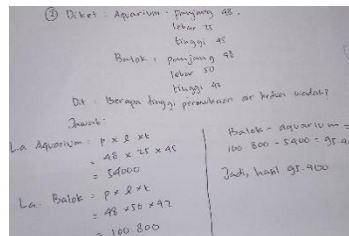 ② Diket : Aquarium - panjang 48.
lebar 25
tinggi 45
Balok : panjang 48
lebar 50
tinggi 42
Dit : Berapa tinggi permukaan air kedua wadah?
Jawab:
La Aquarium = p x l x t
= 48 x 25 x 45
= 54000
La. Balok = p x l x t
= 48 x 50 x 42
= 100 800
Balok - aquarium =
100 800 - 5400 = 95.4
Jadi, hasil 95.400